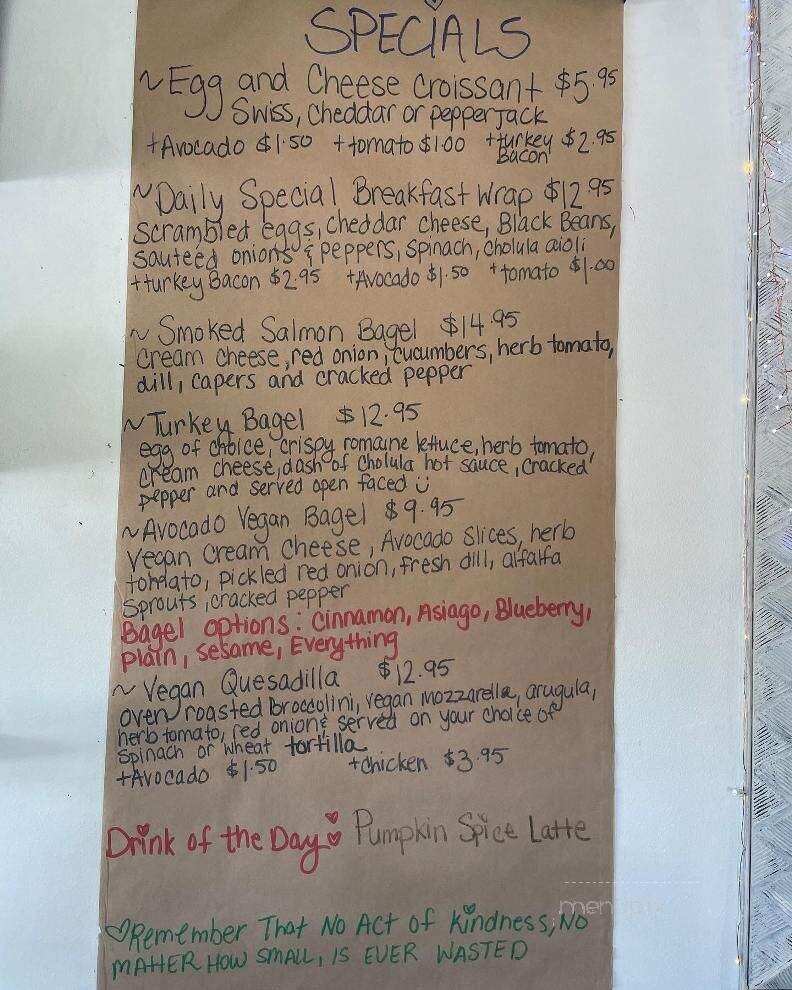 SPECIALS
~Egg and Cheese Croissant $5.95
Swiss, cheddar or pepperjack
+Avocado $1.50 +tomato $1.00 +turkey Bacon $2.95
~Daily Special Breakfast Wrap $12.95
Scrambled eggs, cheddar cheese, Black Beans,
sauteed onions & peppers, spinach, cholula aioli
+turkey Bacon $2.95 +Avocado $1.50 +tomato $1.00
~ Smoked Salmon Bagel $14.95
Cream cheese, red onion, cucumbers, herb tomato,
dill, capers and cracked pepper
~Turkey Bagel $12.95
egg of choice, crispy romaine lettuce, herb tomato,
cream cheese, dash of cholula hot sauce, cracked
pepper and served open faced ü
~Avocado Vegan Bagel $9.95
Vegan Cream Cheese, Avocado slices, herb
tomato, pickled red onion, fresh dill, alfalfa
Sprouts, cracked pepper
Bagel options: Cinnamon, Asiago, Blueberry,
Plain, sesame, Everything
~ Vegan Quesadilla $12.95
oven roasted Broccolini, vegan mozzarella, arugula,
herb tomato, red onion & served on your choice of
spinach or wheat tortilla
+Avocado $1.50 +chicken $3.95
Drink of the Day: Pumpkin Spice Latte
♡Remember That No Act of Kindness, No
MATTER HOW SMALL, IS EVER WASTED